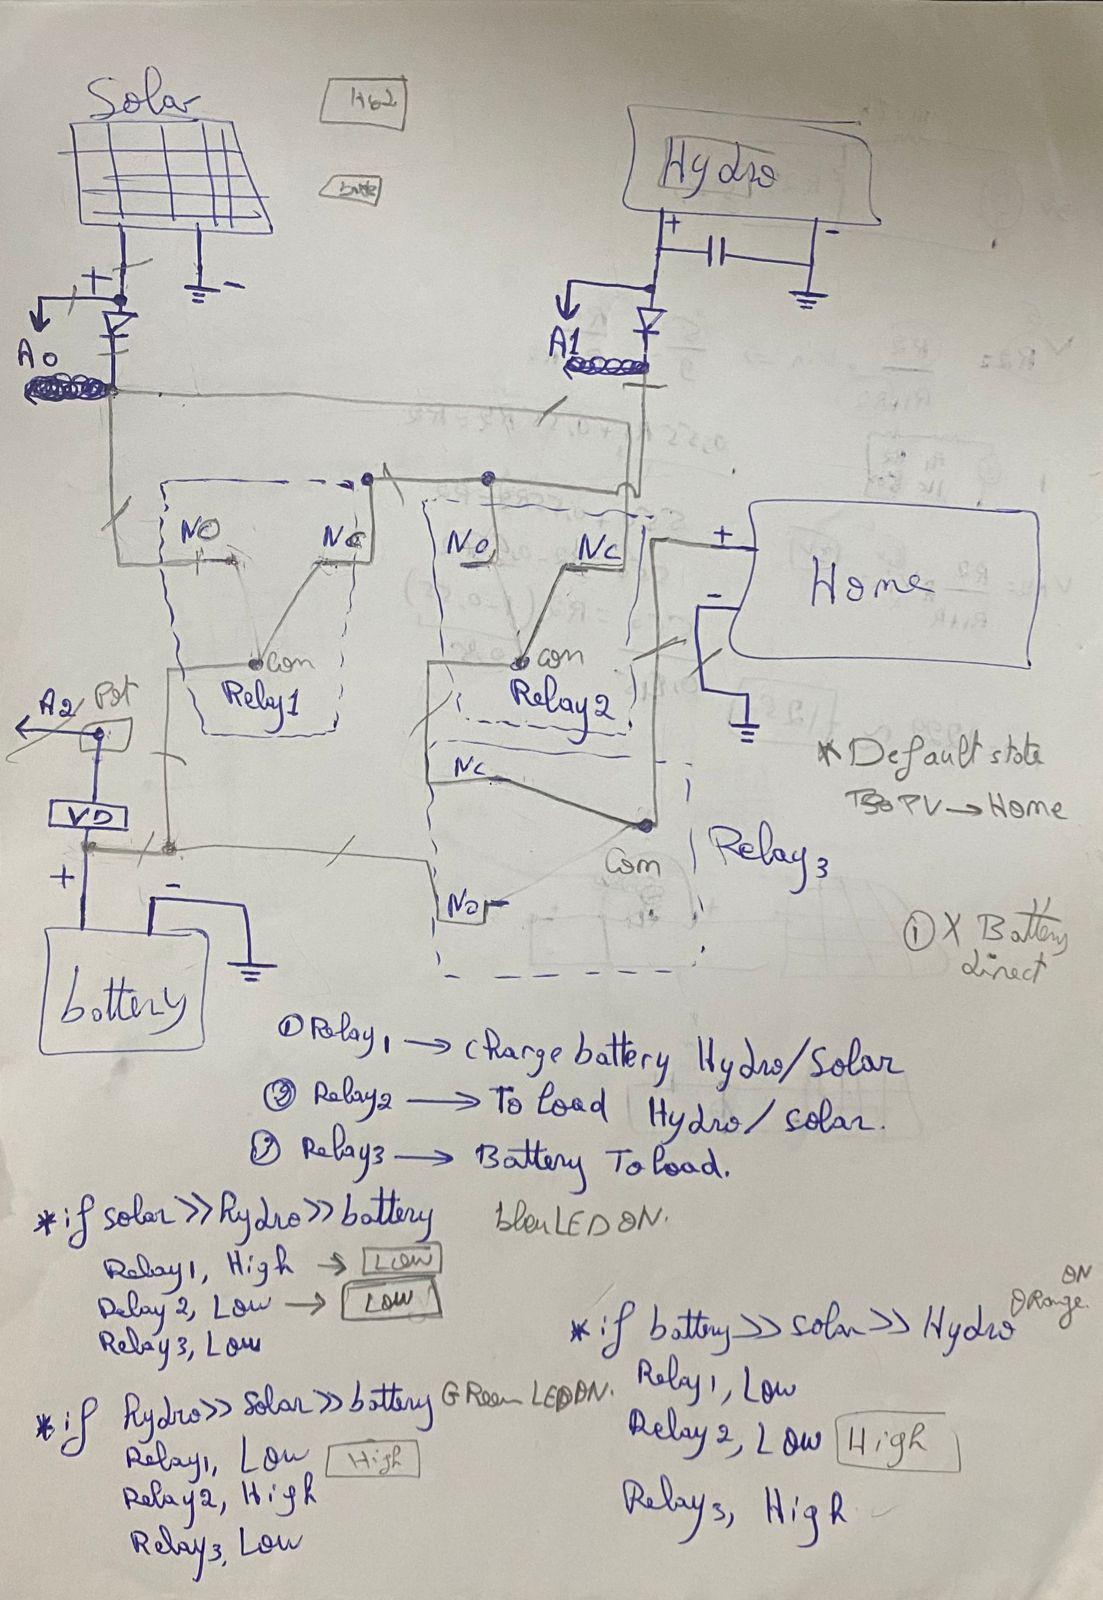 Solar
Hydro
+
-
+
-
A0
A1
NO
NC
NO
NC
+
-
Home
Com
Relay1
Com
Relay2
A2
Pot
VD
+
-
battery
NC
Com
NO
Relay3
* Default state
PV → Home
① X Battery
direct
① Relay1 → charge battery Hydro/Solar
Relay2 → To load Hydro/solar.
Relay3 → Battery To load.
* if solar >> hydro >> battery bleu LED ON.
Relay1, High → Low
Relay2, Low → Low
Relay3, Low
* if hydro >> solar >> battery GReen LED ON.
Relay1, Low High
Relay2, High
Relay3, Low
* if battery >> solar >> Hydro ON
ORange.
Relay1, Low
Relay2, Low High
Relay3, High